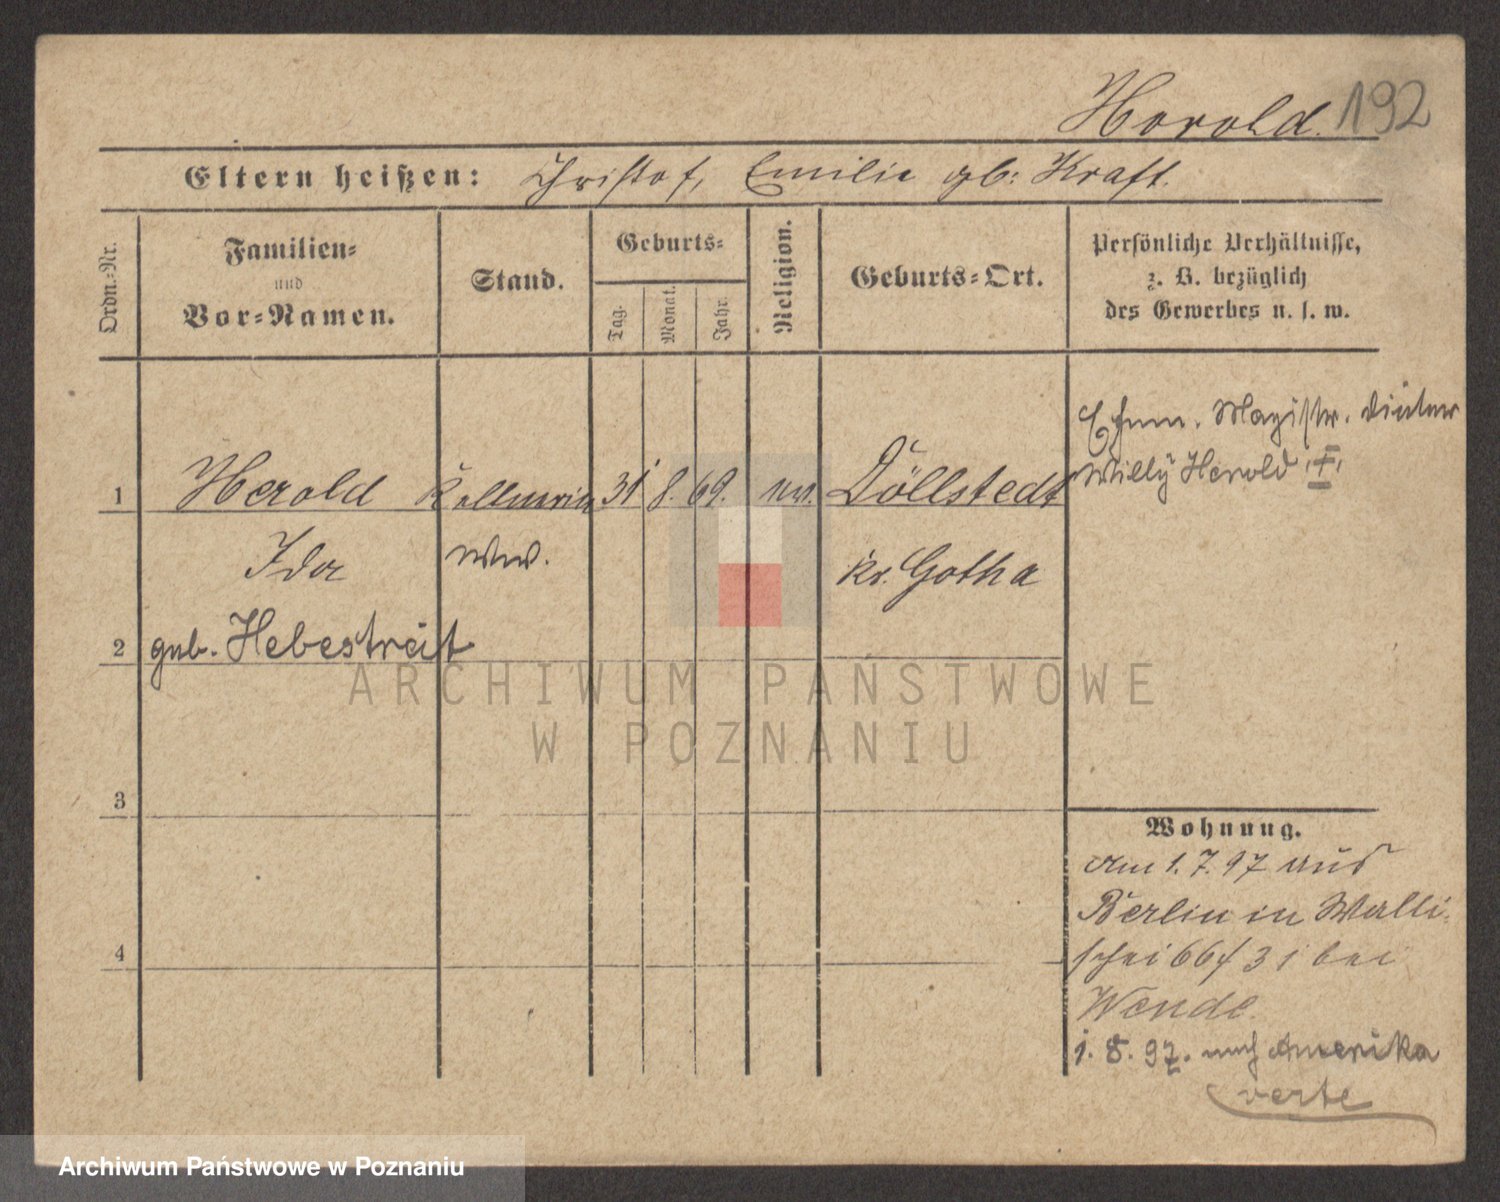 Herold. 192
Eltern heißen: Christof, Emilie gb: Kraft.
Ordn.-Nr.
Familien-
und
Vor-Namen.
Stand.
Geburts-
Tag.
Monat.
Jahr.
Religion.
Geburts-Ort.
Persönliche Verhältnisse,
z. B. bezüglich
des Gewerbes u. s. w.
Willy Herold
1 Herold Kellnerin 31 8. 69. ev. Döllstedt
Ida Ww. Kr. Gotha
2 geb. Hebestreit
3
4
Wohnung.
Am 1. 7. 97 aus
Berlin in Walli-
schei 66/ 31 bei
Wende.
1. 8. 97. nach Amerika
verte
ARCHIWUM PAŃSTWOWE
W POZNANIU
Archiwum Państwowe w Poznaniu